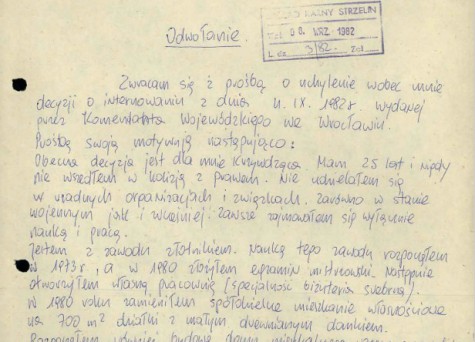 Odwołanie.
KARNY STRZELIN
WRZ. 1982
L. dz. 3/82. Zał.
Zwracam się z prośbą o uchylenie wobec mnie
decyzji o internowaniu z dnia IX. 1982r. wydanej
przez Komendanta Wojewódzkiego we Wrocławiu.
Prośbę swoją motywuję następująco:
Obecna decyzja jest dla mnie krzywdząca. Mam 25 lat i nigdy
nie wszedłem w kolizję z prawem. Nie udzielałem się
w żadnych organizacjach i związkach zarówno w stanie
wojennym jak i wcześniej. Zawsze zajmowałem się wyłącznie
nauką i pracą.
Jestem z zawodu złotnikiem. Naukę tego zawodu rozpocząłem
w 1973r, a w 1980 złożyłem egzamin mistrzowski. Następnie
otworzyłem własną pracownię (specjalność biżuteria srebrna).
w 1980 roku zamieniłem spółdzielcze mieszkanie własnościowe
na 700 m² działki z małym drewnianym domkiem.
Rozpocząłem również budowę domu